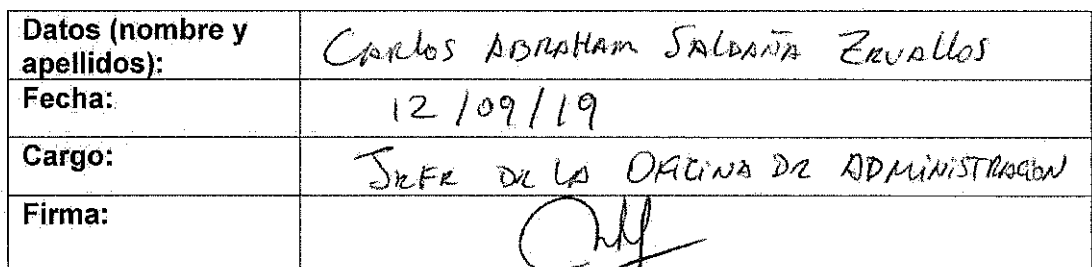 Datos (nombre y
apellidos):
CARlos ABRAHAM SALDAÑA ZEVAllos
Fecha:
12/09/19
Cargo:
JEFE DE LA OFICINA DE ADMINISTRACION
Firma: